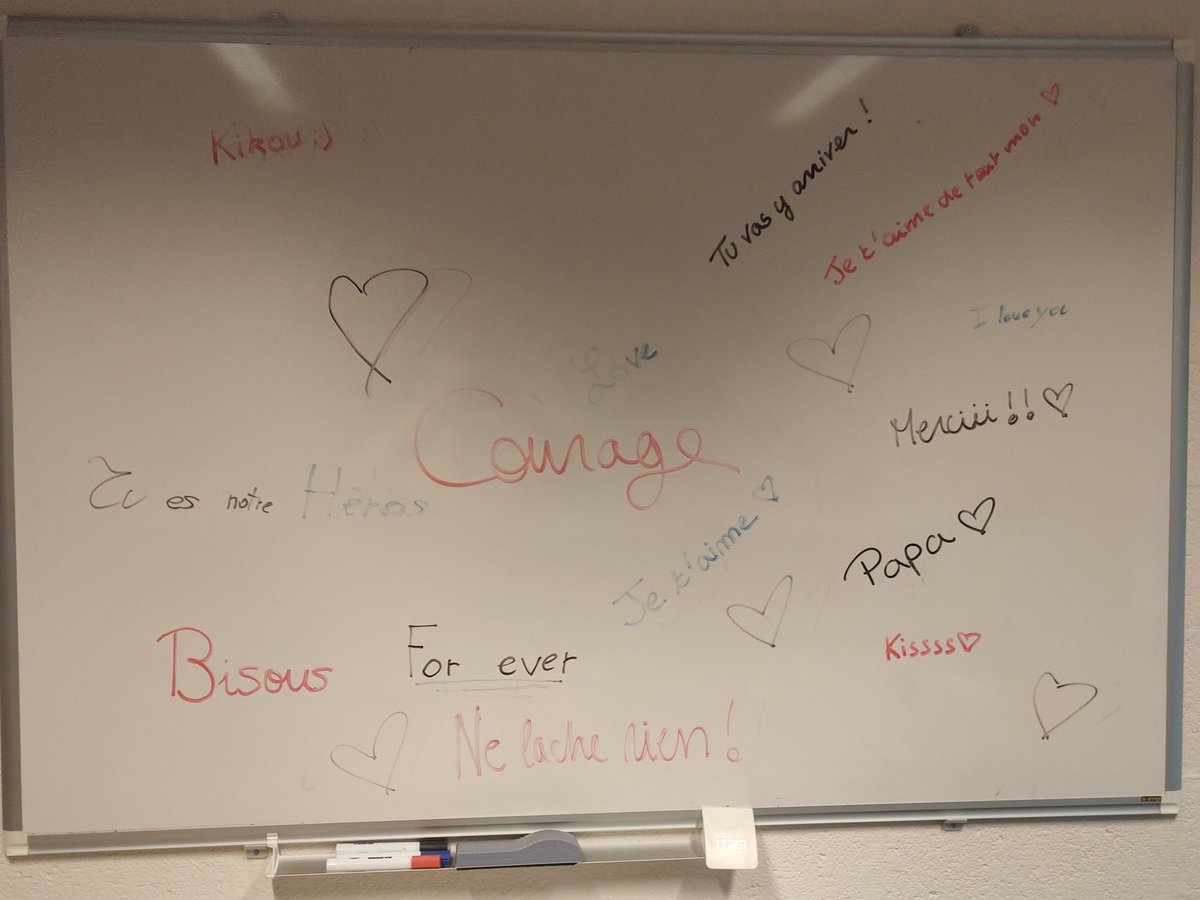 Kikou :)
Tu vas y arriver !
Je t'aime de tout mon ♡
I love you
Love
Courage
Merciii !! ♡
Tu es notre Héros
Je t'aime ♡
Papa ♡
Bisous
For ever
Kissss ♡
Ne lache rien !